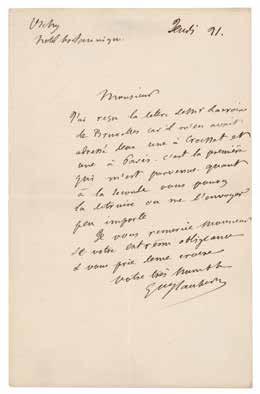 Vichy
hotel britannique
Jeudi 21.
Monsieur
J'ai reçu la lettre de Mr Lacroix
de Bruxelles car il m'en avait
adressé deux une à Croisset et
une à Paris. c'est la première
qui m'est parvenue. quant
à la seconde vous pouvez
la détruire ou me l'envoyer
peu importe
Je vous remercie Monsieur
de votre extrême obligeance
& vous prie de me croire
votre très humble
Gve Flaubert